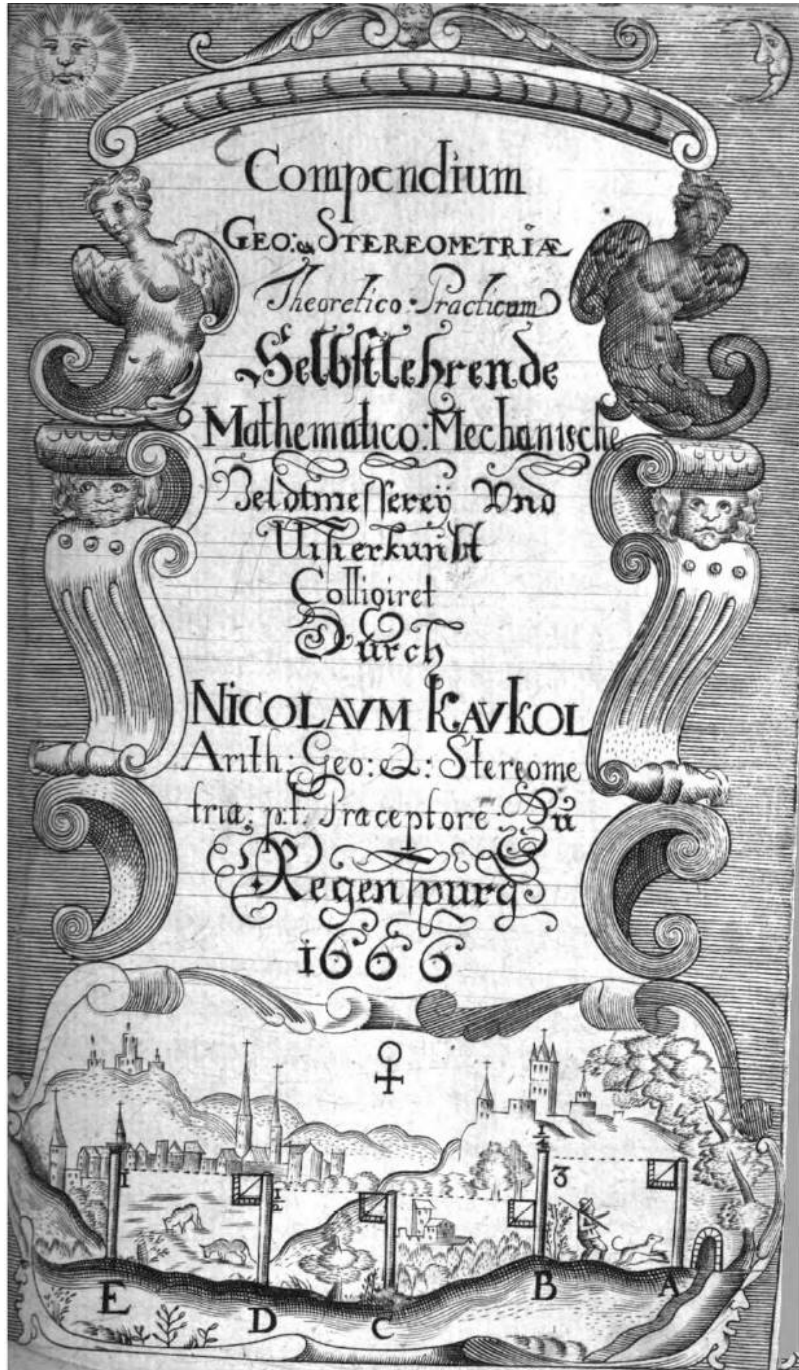 Compendium
GEO: & STEREOMETRIÆ
Theoretico: Practicum
Selbstlehrende
Mathematico: Mechanische
Veldtmesserey Vnd
Visierkunst
Colligiret
Durch
NICOLAVM KAVKOL
Arith: Geo: &: Stereome
triæ: p.t. Præceptorē: Zu
Regenspurg
1666
1
1 2
1 2
3
E
D
C
B
A